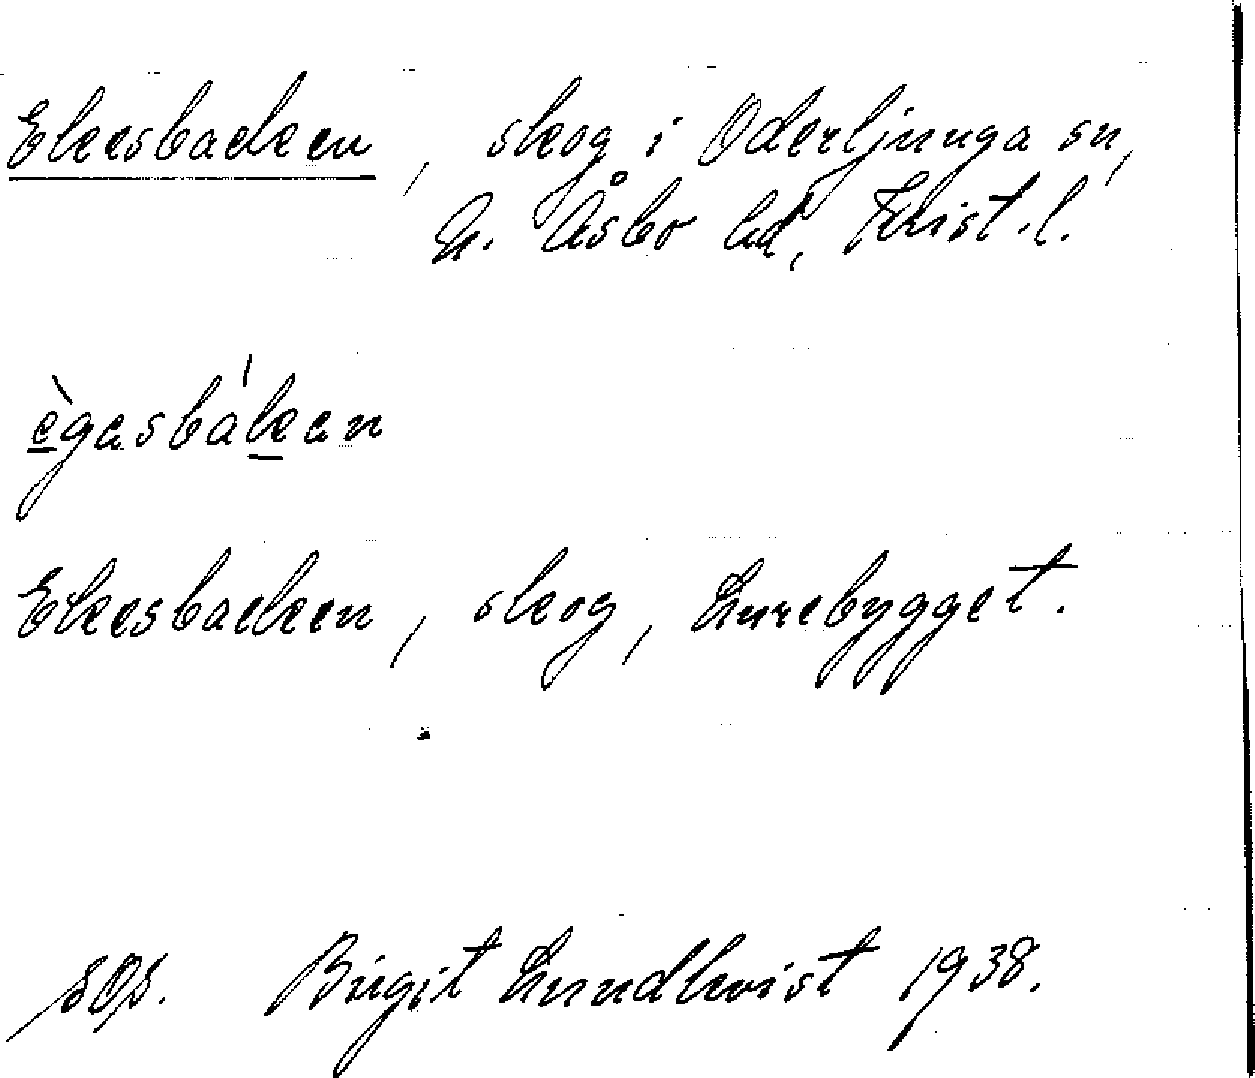 Ekesbacken, skog i Oderljunga sn,
N. Åsbo hd, Krist.l.
ègasbákan
Ekesbacken, skog, Lurebygget.
SOS. Birgit Lundkvist 1938.